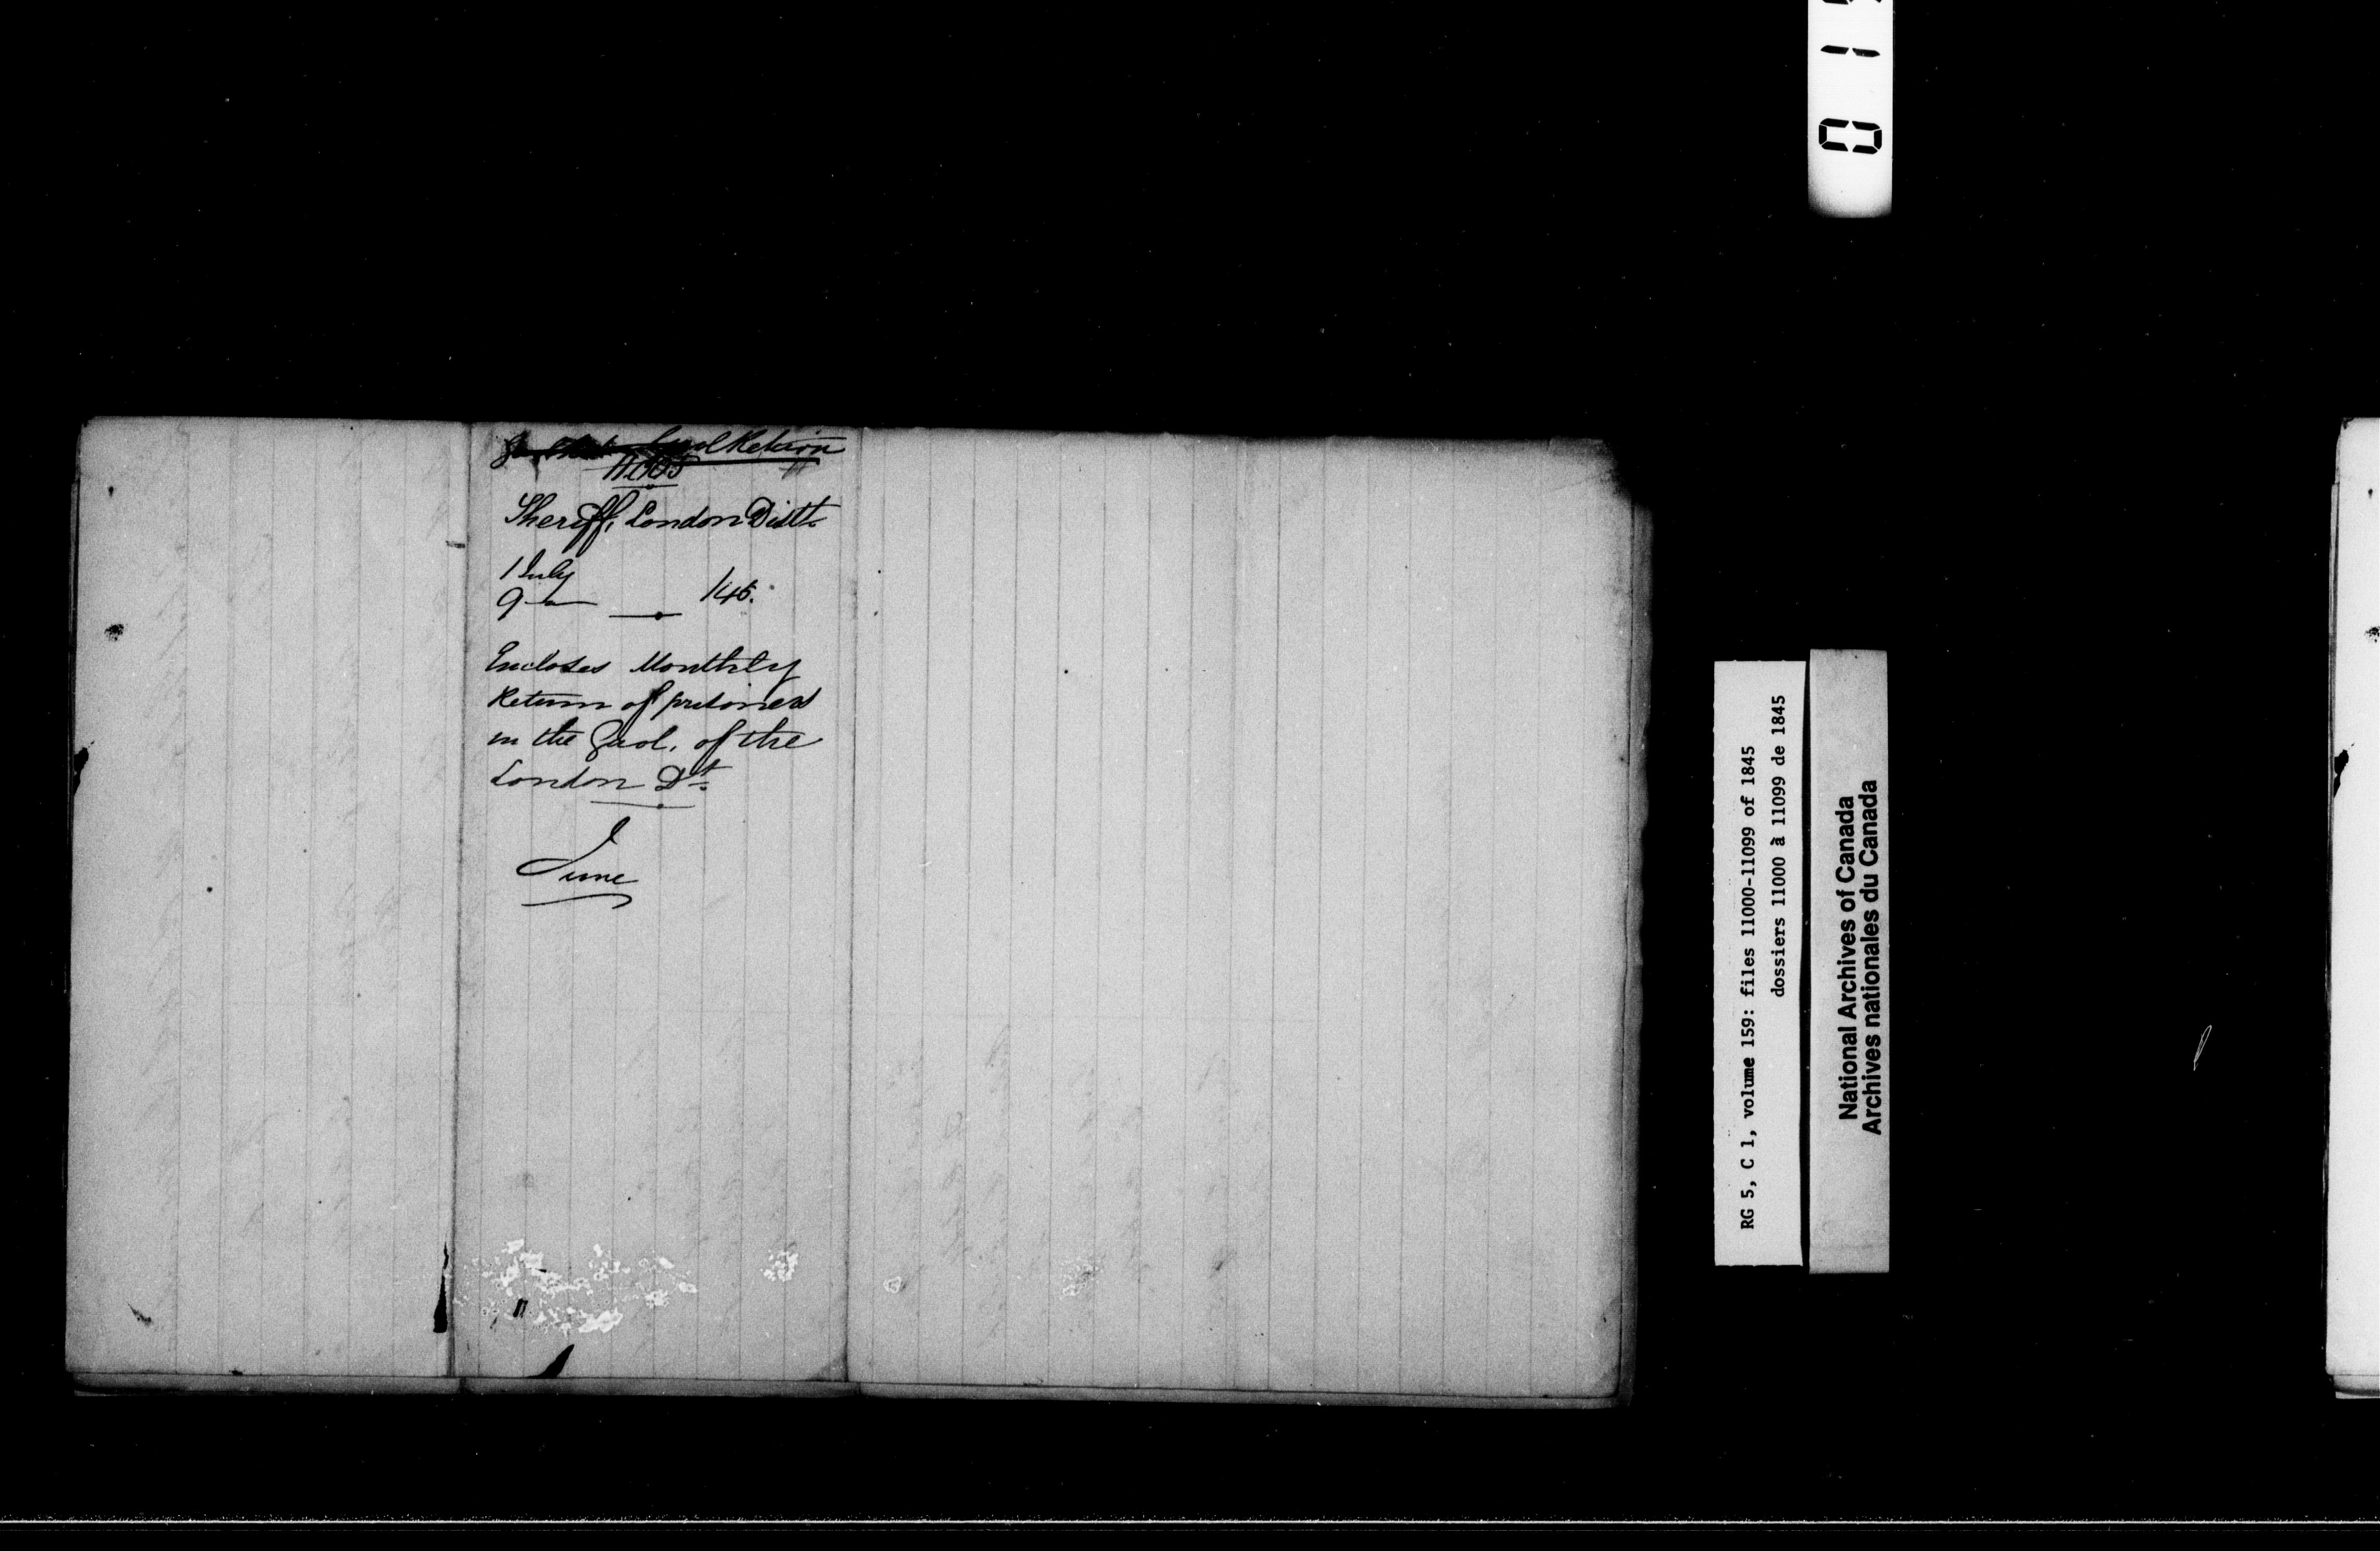 Gaol Return
Sheriff, London Distt.
1 July
9 — /45.
Encloses Monthly
Return of prisoners
in the Gaol. of the
London Dt.
June
RG 5, C 1, volume 159: files 11000-11099 of 1845
dossiers 11000 à 11099 de 1845
National Archives of Canada
Archives nationales du Canada